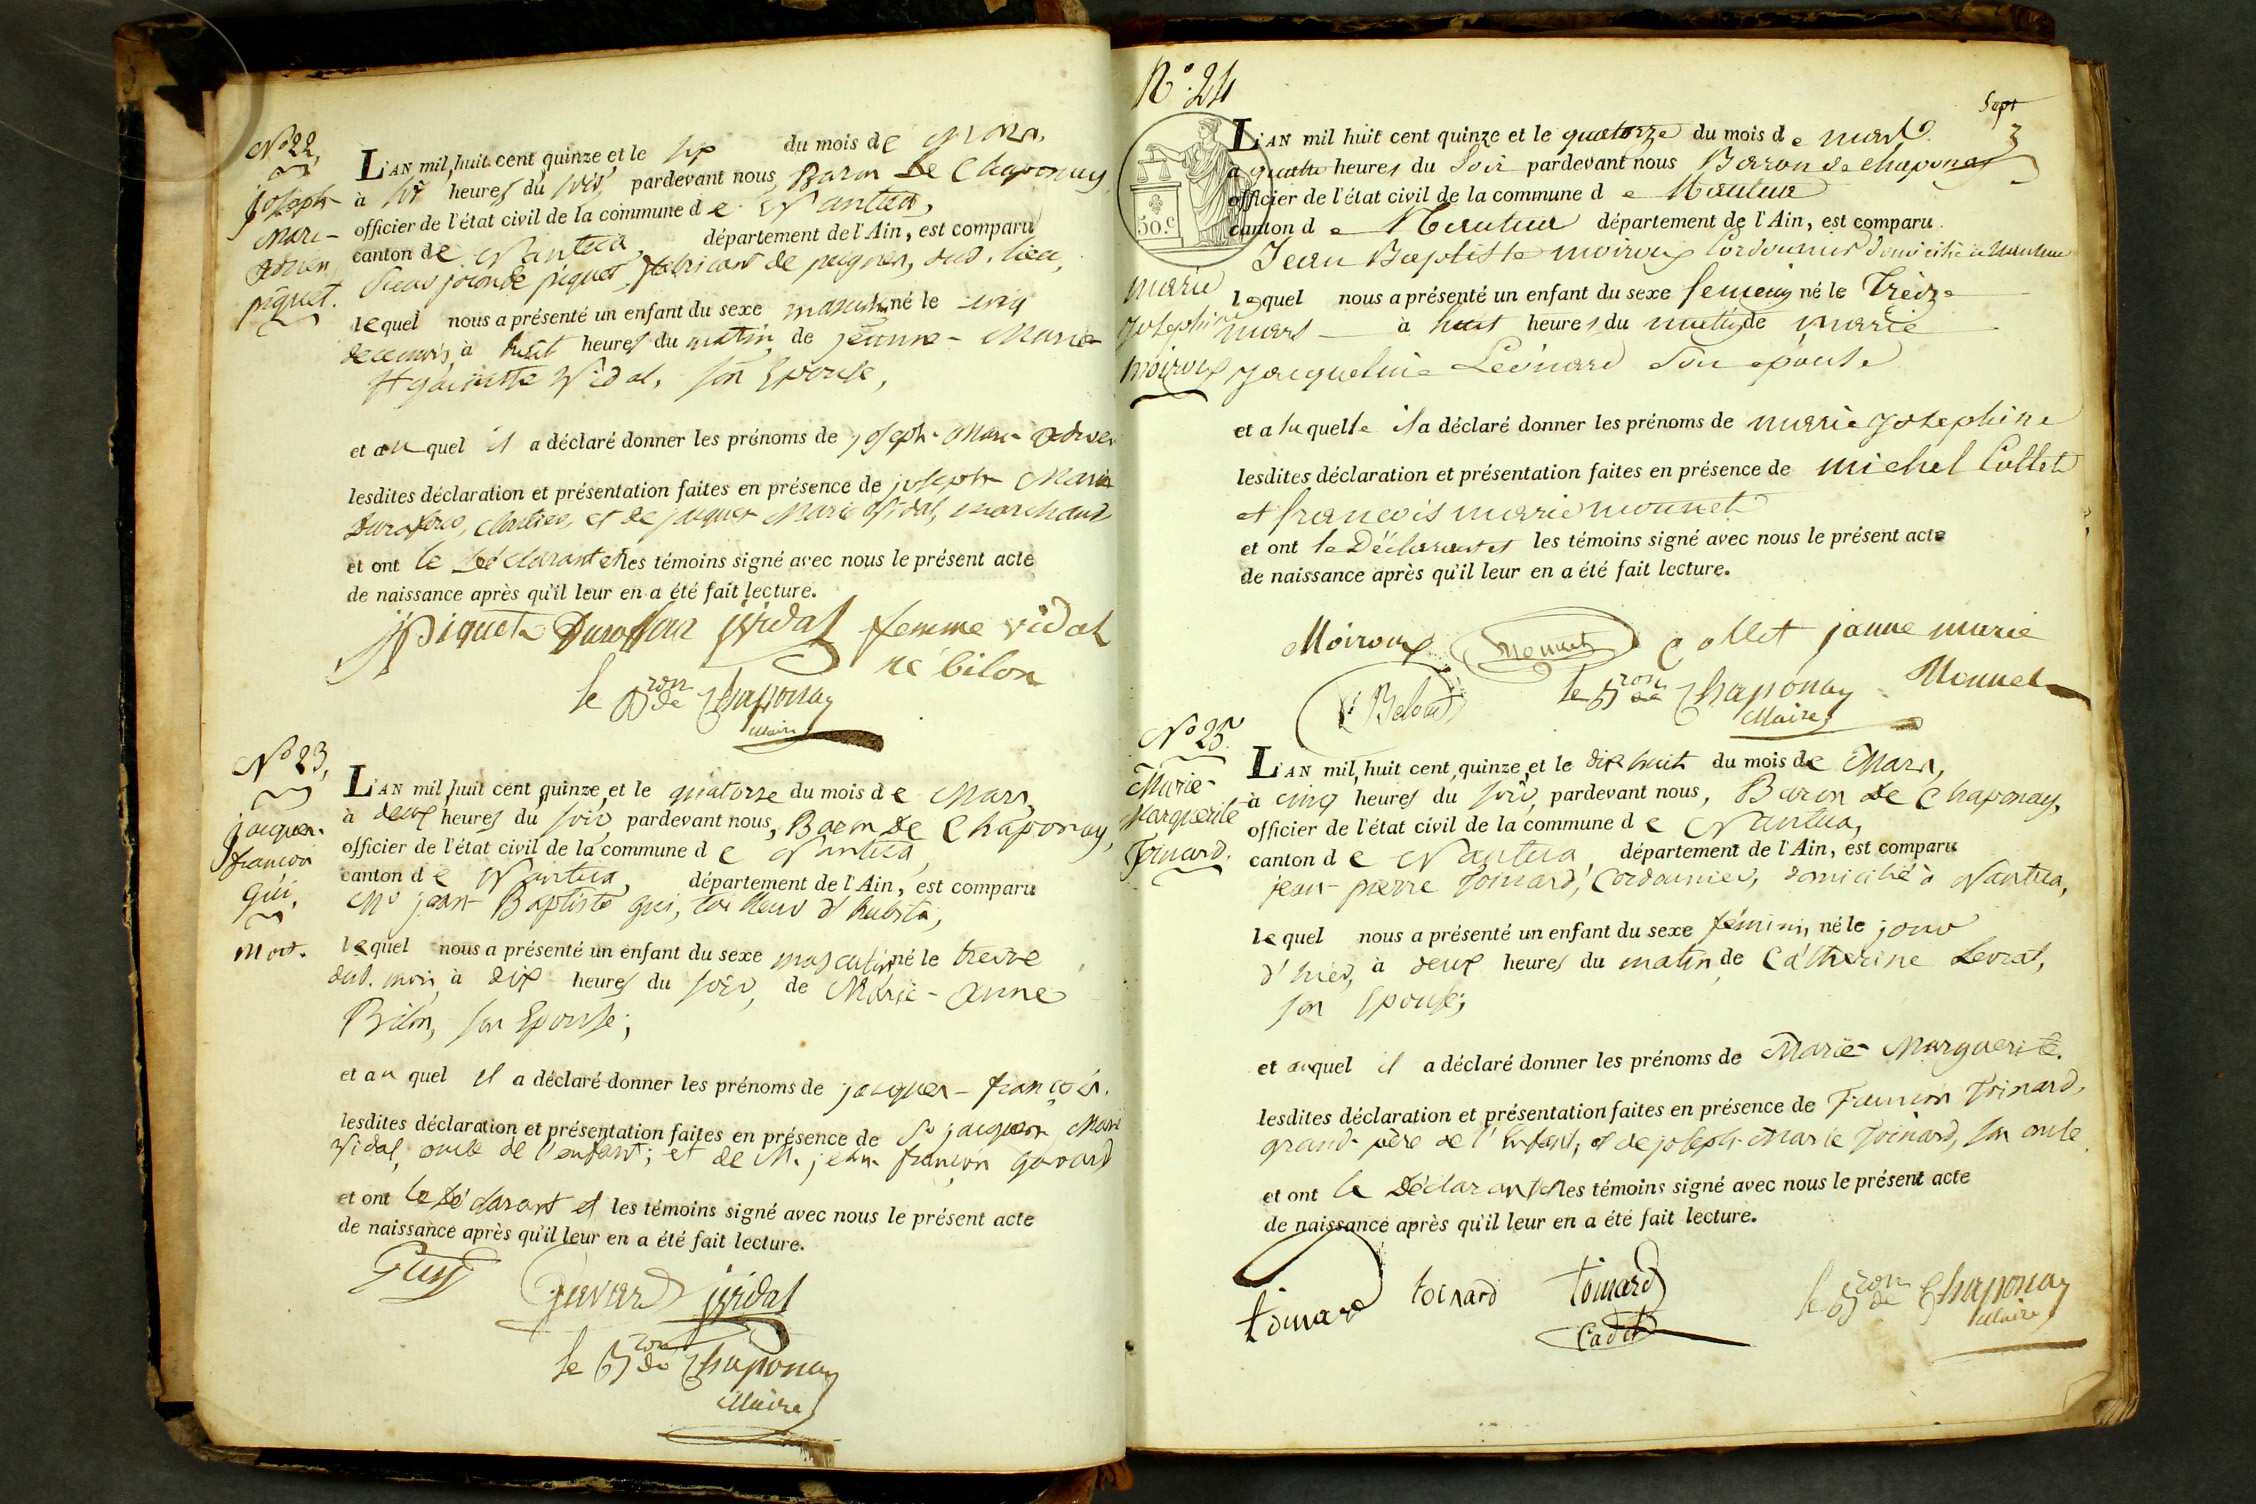 N.º 22,
Joseph-
Marie-
adrien
piquet.
L'AN mil huit cent quinze et le six du mois de Mars,
à six heures du soir, pardevant nous, Baron De Chaponay
officier de l'état civil de la commune de Nantua,
canton de Nantua, département de l'Ain, est comparu
Sieur joconde piquet, fabricant de peignes, dud. lieu,
lequel nous a présenté un enfant du sexe masculin né le cinq
de ce mois, à huit heures du matin, de jeanne-Marie-
Hyacinthe Vidal, son Epouse,
et au quel il a déclaré donner les prénoms de joseph-Marie-adrien
lesdites déclaration et présentation faites en présence de joseph-Marie
Duraffour, et de jacques Marie Vidal, marchand
et ont le Déclarant et les témoins signé avec nous le présent acte
de naissance après qu'il leur en a été fait lecture.
jpiquet Duraffour jvidal femme vidal
né bilon
le Bron de Chaponay
Maire
N.º 23,
jacques-
françois
gui,
mort.
L'AN mil huit cent quinze, et le quatorze du mois de Mars,
à deux heures du soir, pardevant nous, Baron De Chaponay,
officier de l'état civil de la commune de Nantua,
canton de Nantua département de l'Ain, est comparu
Mr jean-Baptiste gui, tailleur d'habits,
lequel nous a présenté un enfant du sexe masculin né le treize
dud. mois, à dix heures du soir, de Marie-anne
Bilon, son Epouse;
et au quel il a déclaré donner les prénoms de jacques-françois.
lesdites déclaration et présentation faites en présence de Sr jacques Marie
Vidal, oncle de l'enfant; et de M. jean françois Gavard
et ont le Déclarant et les témoins signé avec nous le présent acte
de naissance après qu'il leur en a été fait lecture.
Guy
Gavard jvidal
le Bron de Chaponay
Maire
N.º 24
Sept
3
50.c
marie
Josephine
moiroux
L'AN mil huit cent quinze et le quatorze du mois de mars
a quatre heures du Soir pardevant nous Baron de chaponay
officier de l'état civil de la commune de Nantua
canton de Nantua département de l'Ain, est comparu
Jean Baptiste moiroux Cordonnier domicilié à Nantua
lequel nous a présenté un enfant du sexe femenin né le Treize
mars à huit heures du matin de marie
Jacqueline Léonard Son épouse
et a laquelle il a déclaré donner les prénoms de marie Josephine
lesdites déclaration et présentation faites en présence de michel Collet
et françois marie monnet
et ont le Déclarant et les témoins signé avec nous le présent acte
de naissance après qu'il leur en a été fait lecture.
Moiroux monnet Collet janne marie
Monnet
le Bron de Chaponay
Maire
N.º 25.
Marie-
Marguerite
Toinard.
L'AN mil huit cent quinze, et le dix huit du mois de Mars,
à cinq heures du soir, pardevant nous, Baron de Chaponay,
officier de l'état civil de la commune de Nantua,
canton de Nantua, département de l'Ain, est comparu
jean-pierre Toinard, Cordonnier, domicilié à Nantua,
lequel nous a présenté un enfant du sexe féminin, né le jour
d'hier, à deux heures du matin, de Cathérine Levrat,
son Epouse;
et auquel il a déclaré donner les prénoms de Marie-Marguerite.
lesdites déclaration et présentation faites en présence de François Toinard,
grand-père de l'Enfant, et de joseph-Marie Toinard, son oncle
et ont le Déclarant et les témoins signé avec nous le présent acte
de naissance après qu'il leur en a été fait lecture.
toinard toinard toinard
Cadet
le Bron de Chaponay
Maire